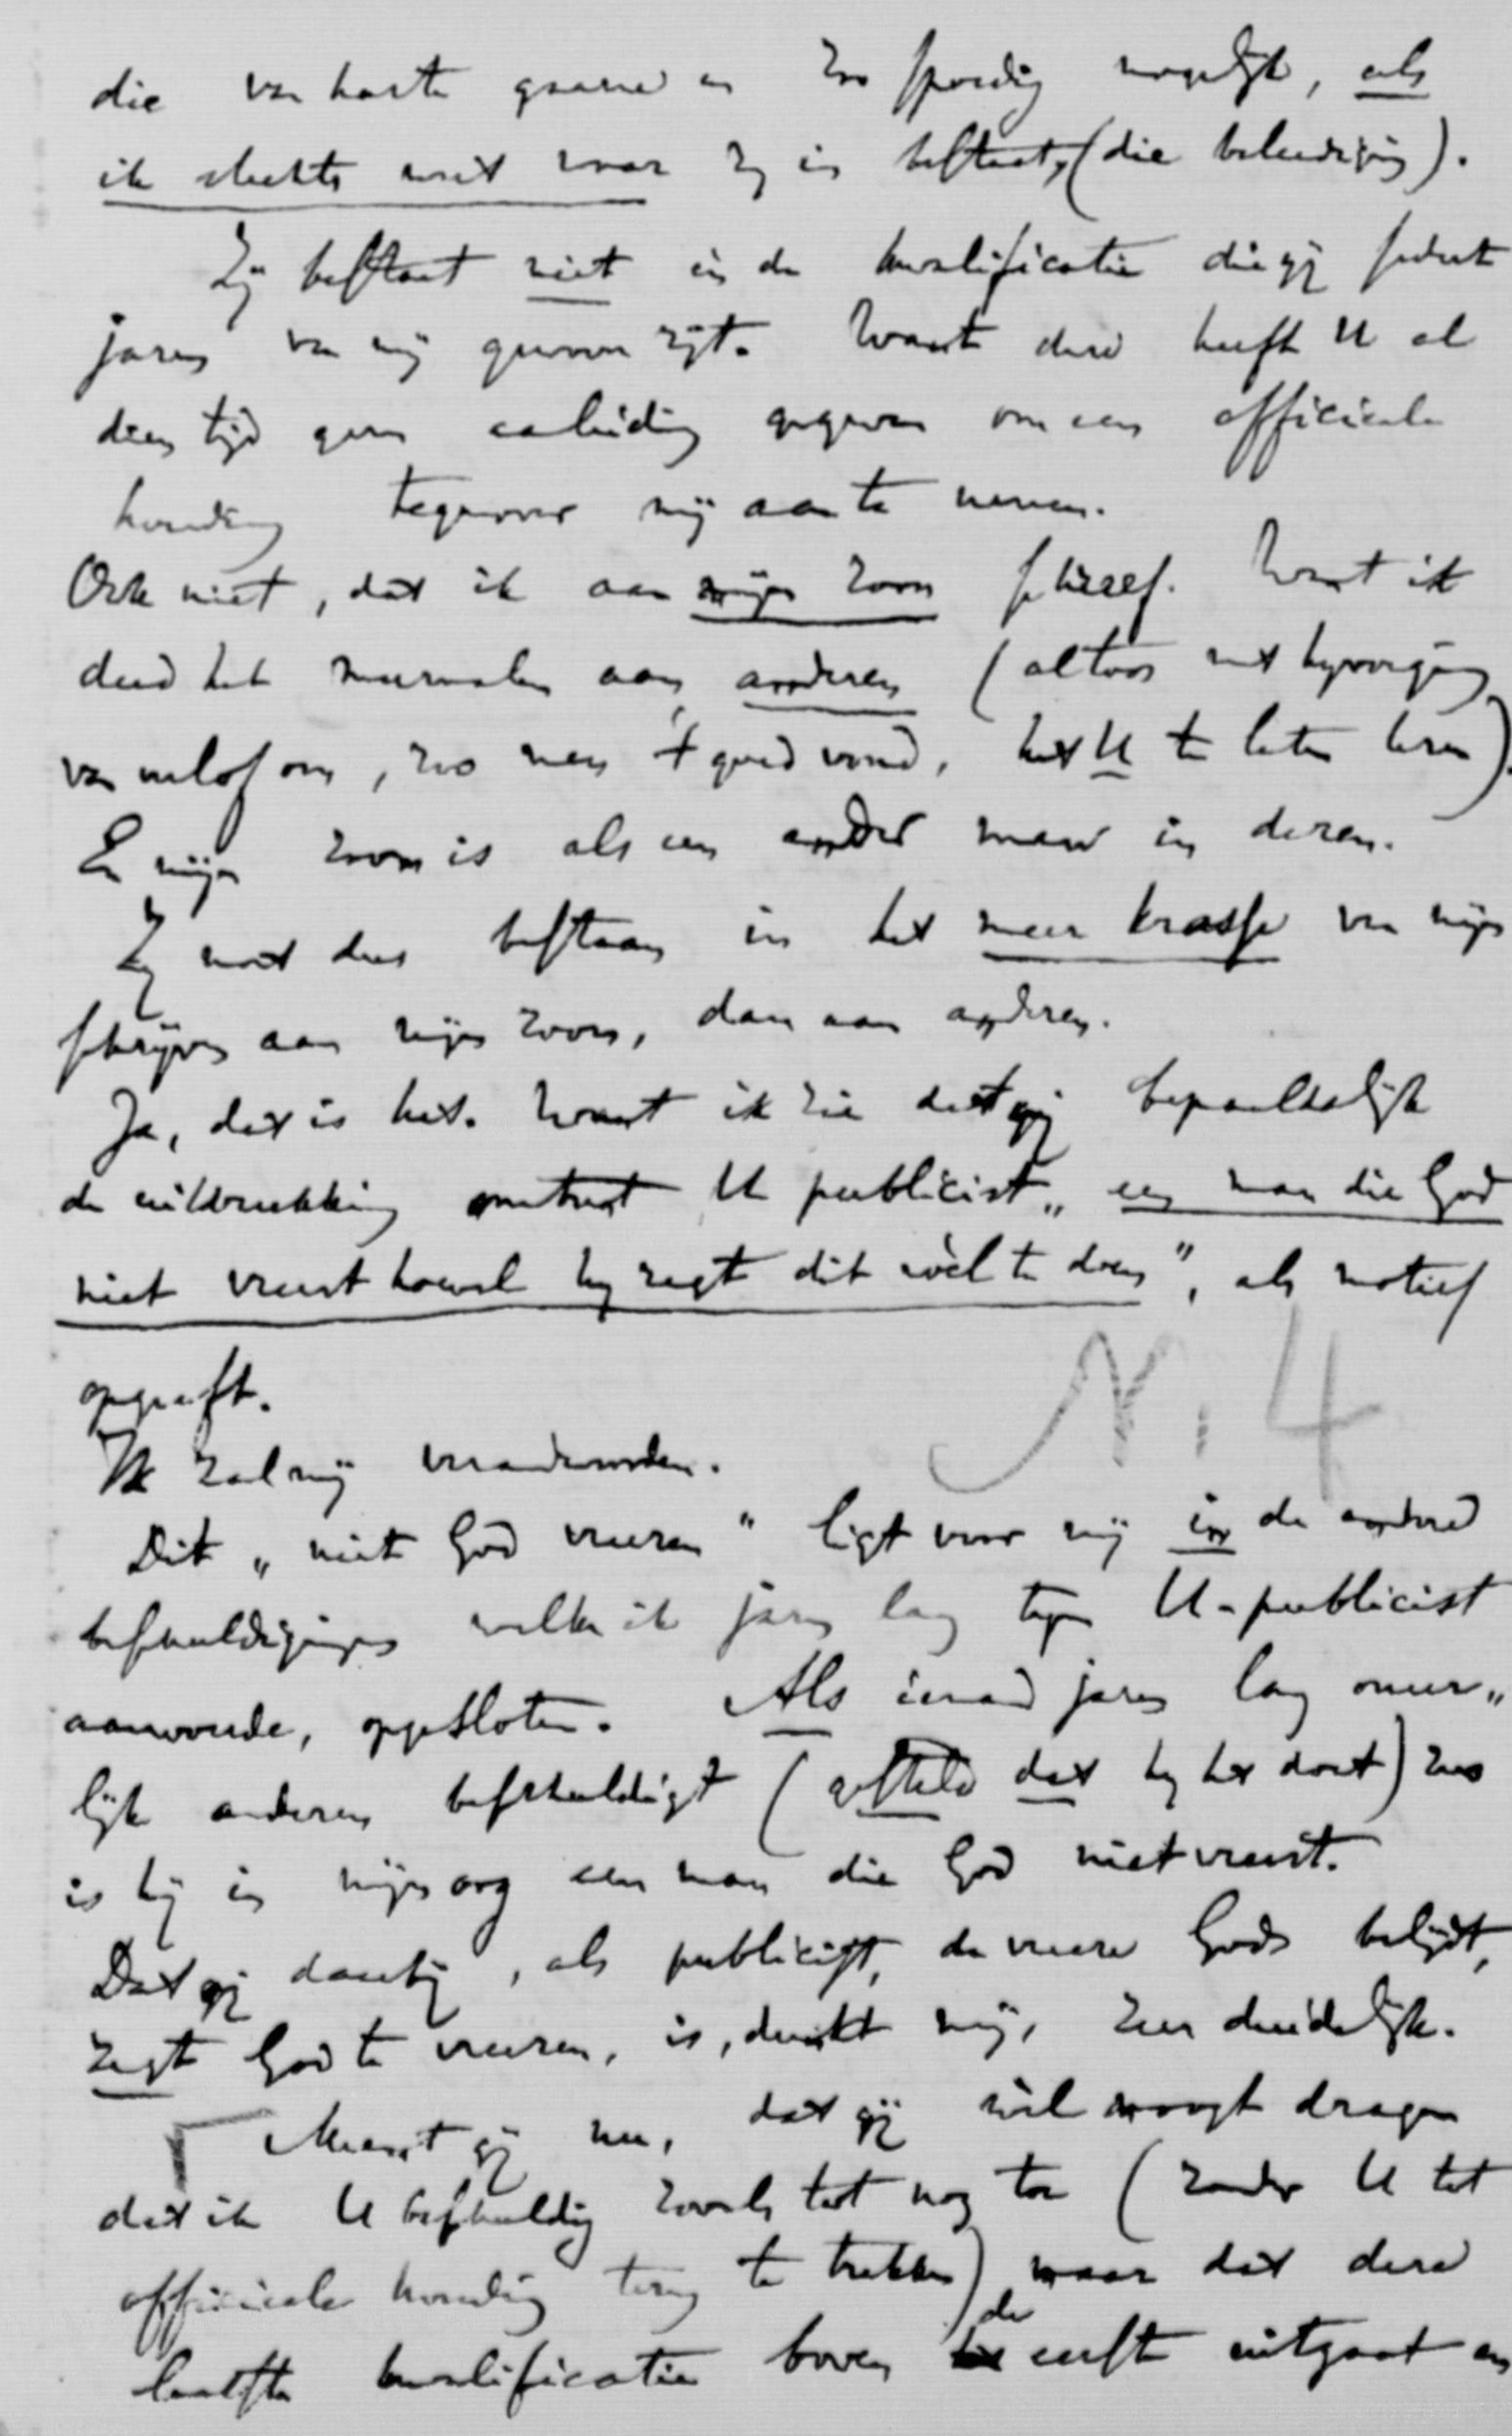 die van harte gaarne en zoo spoedig mogelijk, als
ik slechts weet waar zy in bestaat, (die beleediging).
Zy bestaat niet in de kwalificatie die gij sedert
jaren van mij gewoon zijt. Want deze heeft U al
dien tijd geen aanleiding gegeven om een officieele
houding tegenover mij aan te nemen.
Ook niet, dat ik aan mijn zoon schreef. Want ik
deed het meermalen aan anderen (altoos met byvoeging
van verlof om, zoo men 't goed vond, het U te laten lezen).
En mijn zoon is als een ander mensch in dezen.
Zy moet dus bestaan in het meer krasse van mijn
schrijven aan mijn zoon, dan aan anderen.
Ja, dat is het. Want ik zie dat gij bepaaldelijk
de uitdrukking omtrent U publicist „een man die God
niet vreest hoewel hy zegt dit wèl te doen", als motief
opgeeft.
N. 4
Ik zal mij verantwoorden.
Dit „niet God vreezen" ligt voor mij in de andere
beschuldigingen welke ik jaren lang tegen U-publicist
aanvoerde, opgesloten. Als iemand jaren lang oneer„
lijk anderen beschuldigt (gesteld dat hy het doet) zoo
is hij in mijn oog een man die God niet vreest.
Dat gij daarbij, als publicist, de vreeze Gods belijdt,
zegt God te vreezen, is, dunkt mij, zeer duidelijk.
Meent gij nu, dat gij wèl moogt dragen
dat ik U beschuldig zooals tot nog toe (zonder U tot
officieele houding terug te trekken) maar dat deze
laatste kwalificatie boven de eerste uitgaat en